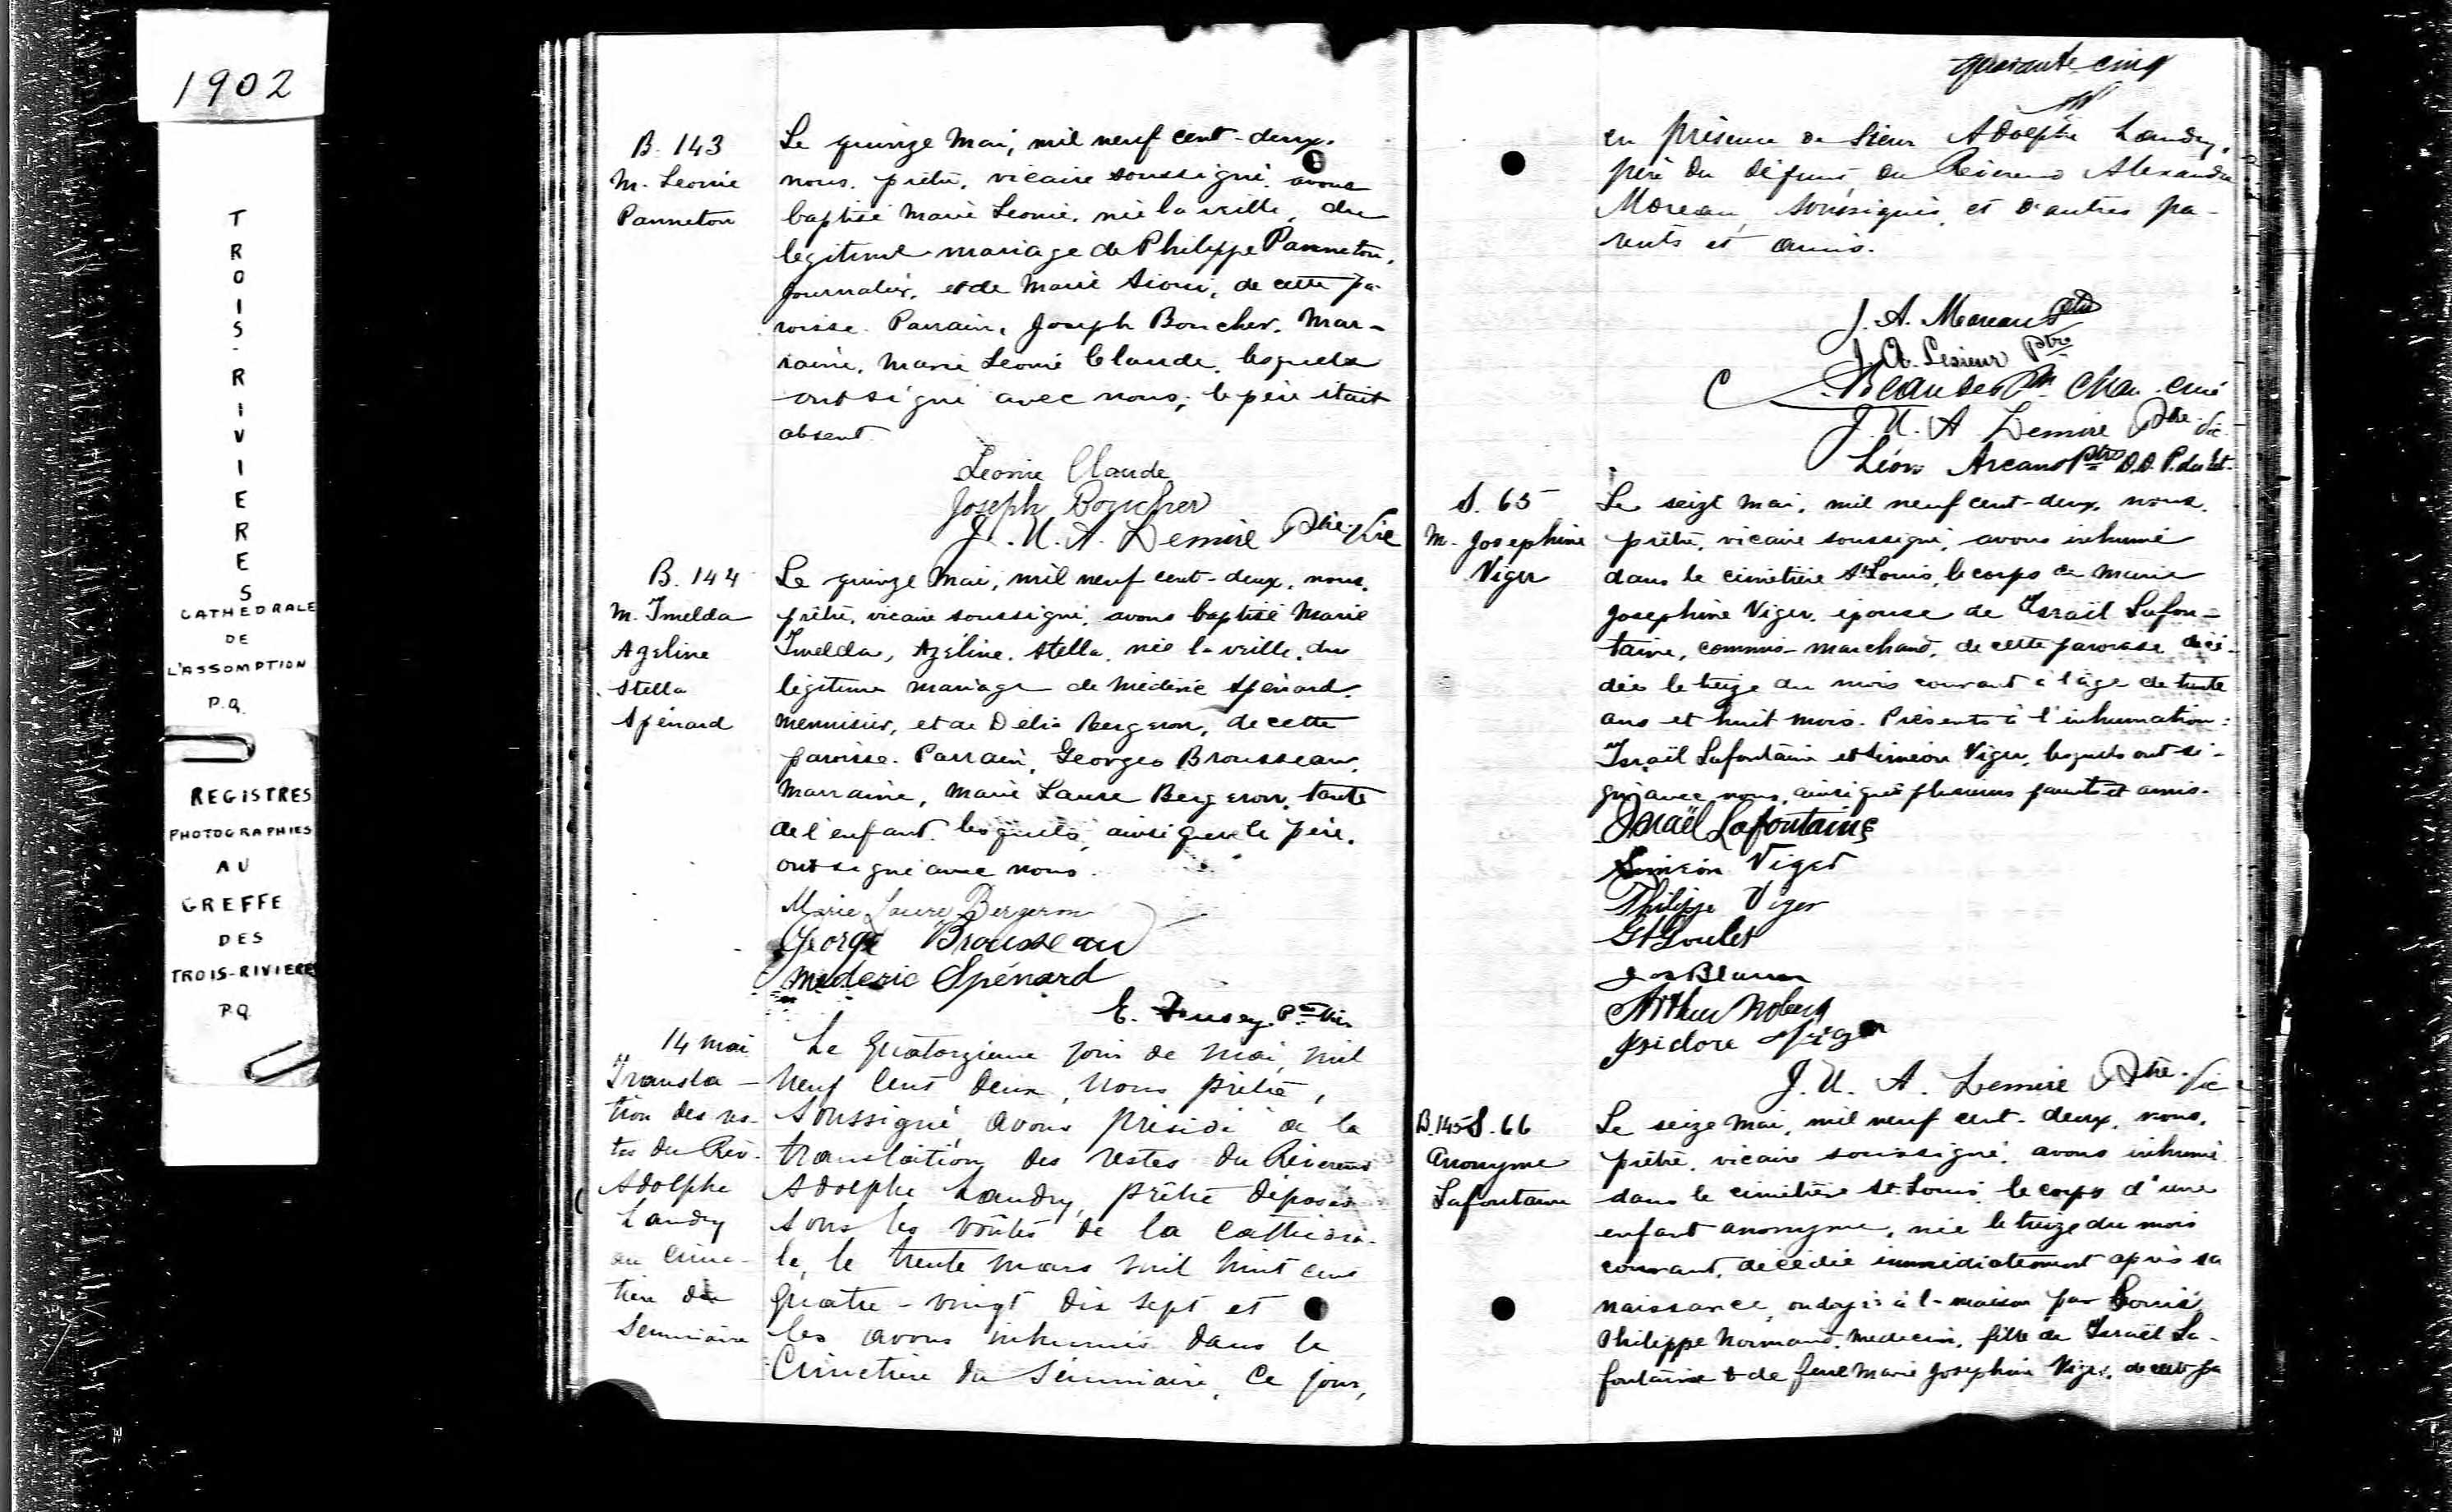 1902
TROIS-RIVIERES
CATHEDRALE
DE
L'ASSOMPTION
P.Q.
REGISTRES
PHOTOGRAPHIES
AU
GREFFE
DES
TROIS-RIVIERES
P.Q.
B. 143
M. Leonie
Panneton
Le quinze Mai, mil neuf cent-deux,
nous, prêtre, vicaire soussigné, avons
baptisé Marie Leonie, née la veille, du
légitime mariage de Philippe Panneton,
journalier, et de Marie, de cette pa-
roisse. Parrain, Joseph Boucher. Mar-
raine, Marie Leonie Claude, lesquels
ont signé avec nous, le père était
absent.
Leonie Claude
Joseph Boucher
J. U. A. Lemire Ptre. Vic
B. 144
M. Imelda
Azeline
Stella
Spénard
Le quinze Mai, mil neuf cent-deux, nous,
prêtre, vicaire soussigné, avons baptisé Marie
Imelda, Azéline, Stella, née la veille, du
légitime mariage de Médéric Spénard,
menuisier, et de Délia Bergeron, de cette
paroisse. Parrain, Georges Brousseau,
Marraine, Marie Laure Bergeron, tante
de l'enfant, lesquels, ainsi que le père,
ont signé avec nous.
Marie Laure Bergeron
George Brousseau
Mederic Spénard
E. Ptre Vic
14 mai
Transla-
tion des res-
tes du Rév.
Adolphe
Landry
au cime-
tière du
Séminaire
Le quatorzieme jour de mai, mil
neuf cent deux, nous prêtre,
soussigné avons présidé à la
translation des restes du Révérend
Adolphe Landry, prêtre déposés
sous les voûtes de la cathédra-
le, le trente mars mil huit cent
quatre-vingt dix sept et
les avons inhumés dans le
Cimetière du Séminaire, ce jour,
quarante-cinq
en présence de Sieur Adolphe Landry,
père du défunt du Révérend Alexandre
Moreau, soussignés, et d'autres pa-
rents et amis.
J. A. Moreau Ptre
J. A. Lesieur Ptre
C. Beaudet Chan. Curé
J. U. A. Lemire Ptre. Vic
Léon Arcand Ptre D.D. P. du Sét.
S. 65
M. Josephine
Viger
Le seize Mai, mil neuf cent-deux, nous,
prêtre, vicaire soussigné, avons inhumé
dans le cimetière St Louis, le corps de Marie
Josephine Viger, épouse de Israël Lafon-
taine, commis-marchand, de cette paroisse, décé-
dée le treize du mois courant à l'âge de trente
ans et huit mois. Présents à l'inhumation:
Israël Lafontaine et Siméon Viger, lesquels ont si-
gné avec nous, ainsi que plusieurs parents et amis.
Israël Lafontaine
Siméon Viger
Philippe Viger
Goulet
Jos
Arthur Nobert
Isidore Viger
J. U. A. Lemire Ptre. Vic
B.145 S. 66
Anonyme
Lafontaine
Le seize Mai, mil neuf cent-deux, nous,
prêtre, vicaire soussigné, avons inhumé
dans le cimetière St. Louis, le corps d'une
enfant anonyme, née le treize du mois
courant, décédée immédiatement après sa
naissance, ondoyée à la maison par Louis
Philippe Normand, medecin, fille de Israël La-
fontaine & de feue Marie Josephine Viger, de cette pa